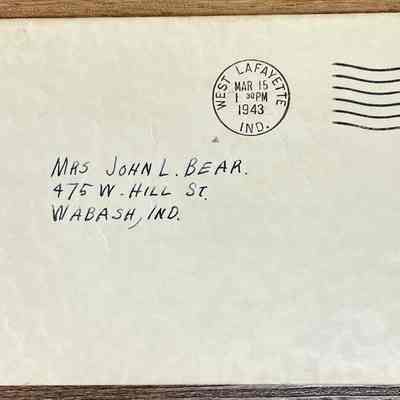 WEST LAFAYETTE
MAR 15
1 30 PM
1943
IND.
MRS JOHN L. BEAR.
475 W. HILL ST.
WABASH, IND.